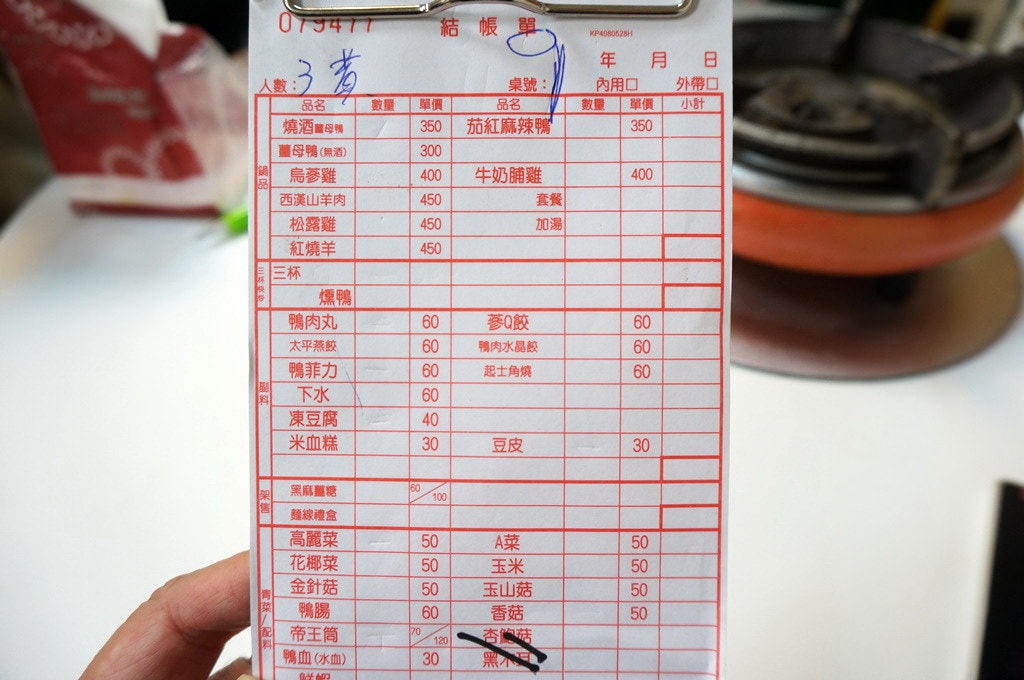 079477
結帳單
KP4080528H
年 月 日
人數:3 黃 桌號:9 內用□ 外帶□
品名 數量 單價 品名 數量 單價 小計
鍋品
燒酒薑母鴨 350 茄紅麻辣鴨 350
薑母鴨(無酒) 300
烏蔘雞 400 牛奶脯雞 400
西漢山羊肉 450 套餐
松露雞 450 加湯
紅燒羊 450
三杯
燻鴨
副料
鴨肉丸 60 蔘Q餃 60
太平燕餃 60 鴨肉水晶餃 60
鴨菲力 60 起士角燒 60
下水 60
凍豆腐 40
米血糕 30 豆皮 30
架售
黑麻薑糖 60/100
麵線禮盒
青菜/配料
高麗菜 50 A菜 50
花椰菜 50 玉米 50
金針菇 50 玉山菇 50
鴨腸 60 香菇 50
帝王筒 70/120 杏鮑菇
鴨血(水血) 30 黑木耳
鮮蝦